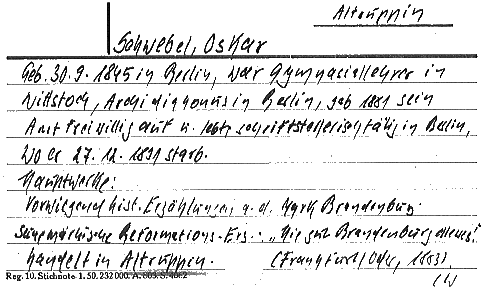 Altruppin
Schwebel, Oskar
Geb. 30.9.1845 in Berlin, war Gymnasiallehrer in
Wittstock, Archidiakonus in Berlin, gab 1881 sein
Amt freiwillig auf u. lebte schriftstellerisch tätig in Berlin,
wo er 27.12.1891 starb.
Hauptwerke:
Vorwiegend hist. Erzählungen a. d. Mark Brandenburg
Reformations-Erz.: „Hie gut Brandenburg allewege"
handelt in Altruppin. (Frankfurt/Oder, 1883).
Reg. 10. Stichnote 1. 50. 232000. A. 603. S. 46. 2